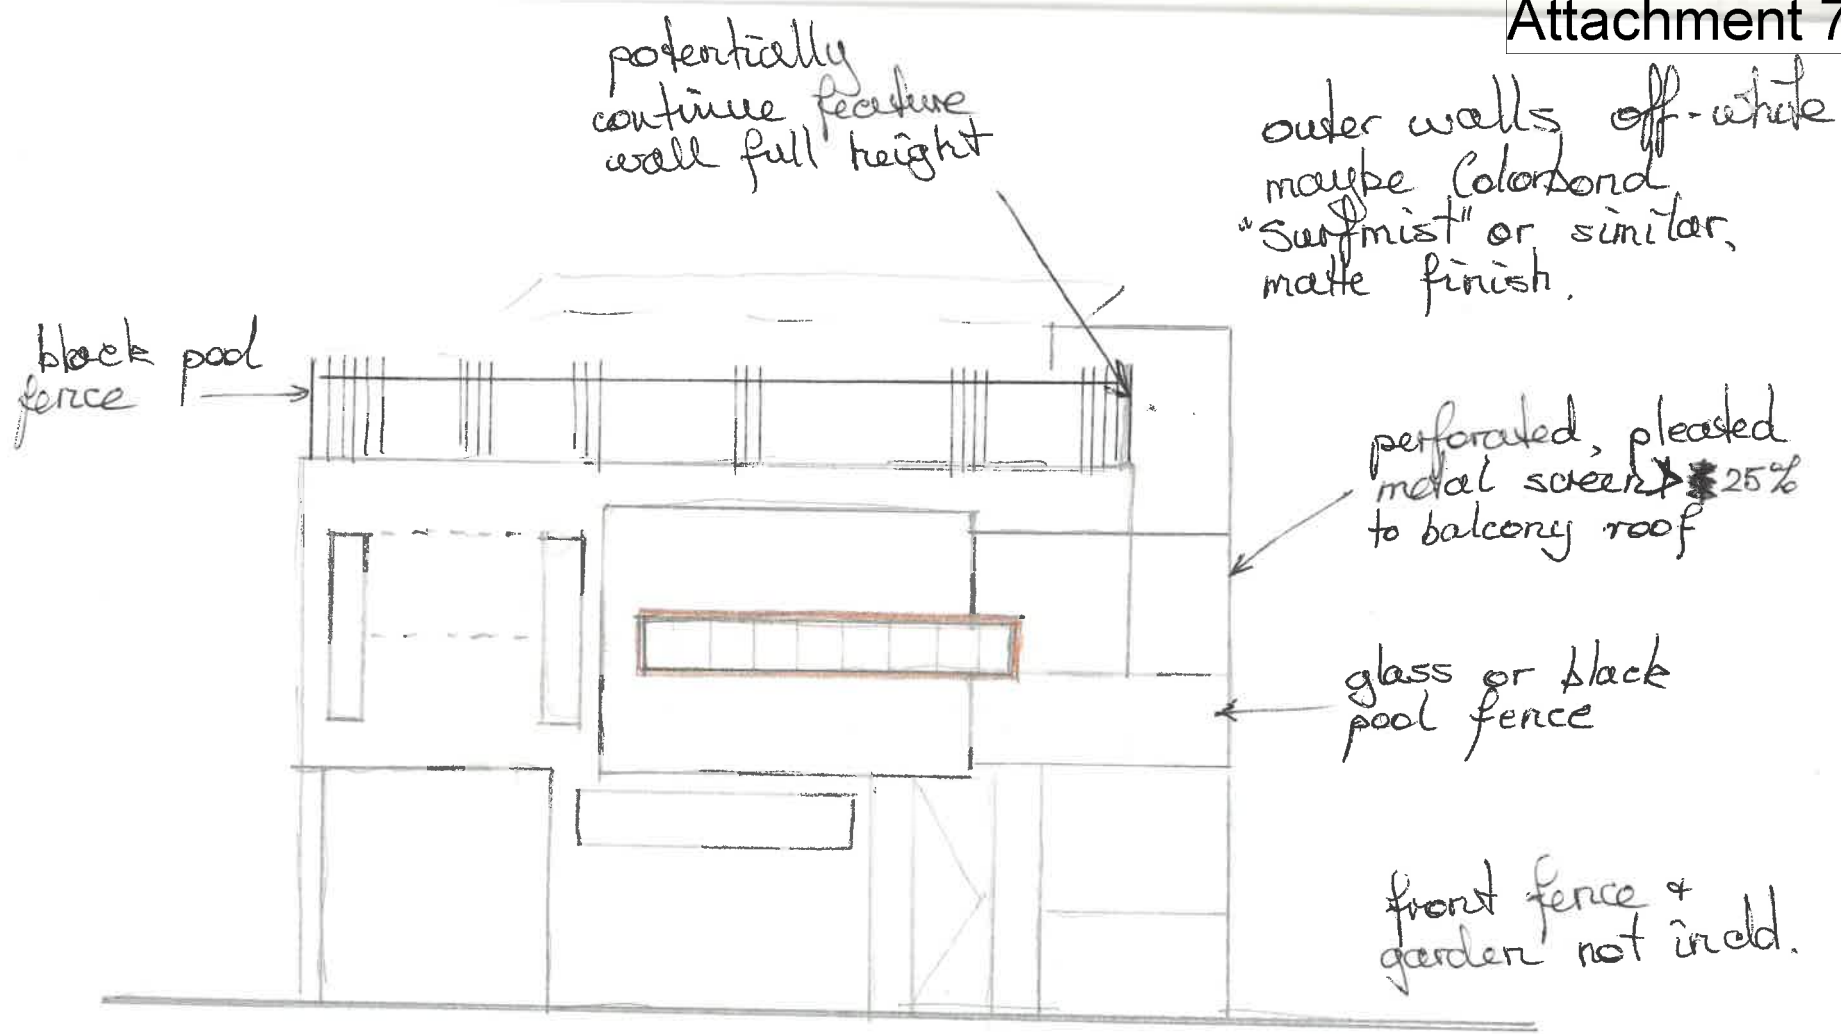 Attachment 7
potentially
continue feature
wall full height
outer walls off-white
maybe Colorbond
"Surfmist" or similar,
matte finish.
black pool
fence
perforated, pleated
metal screen > 25%
to balcony roof
glass or black
pool fence
front fence &
garden not incld.